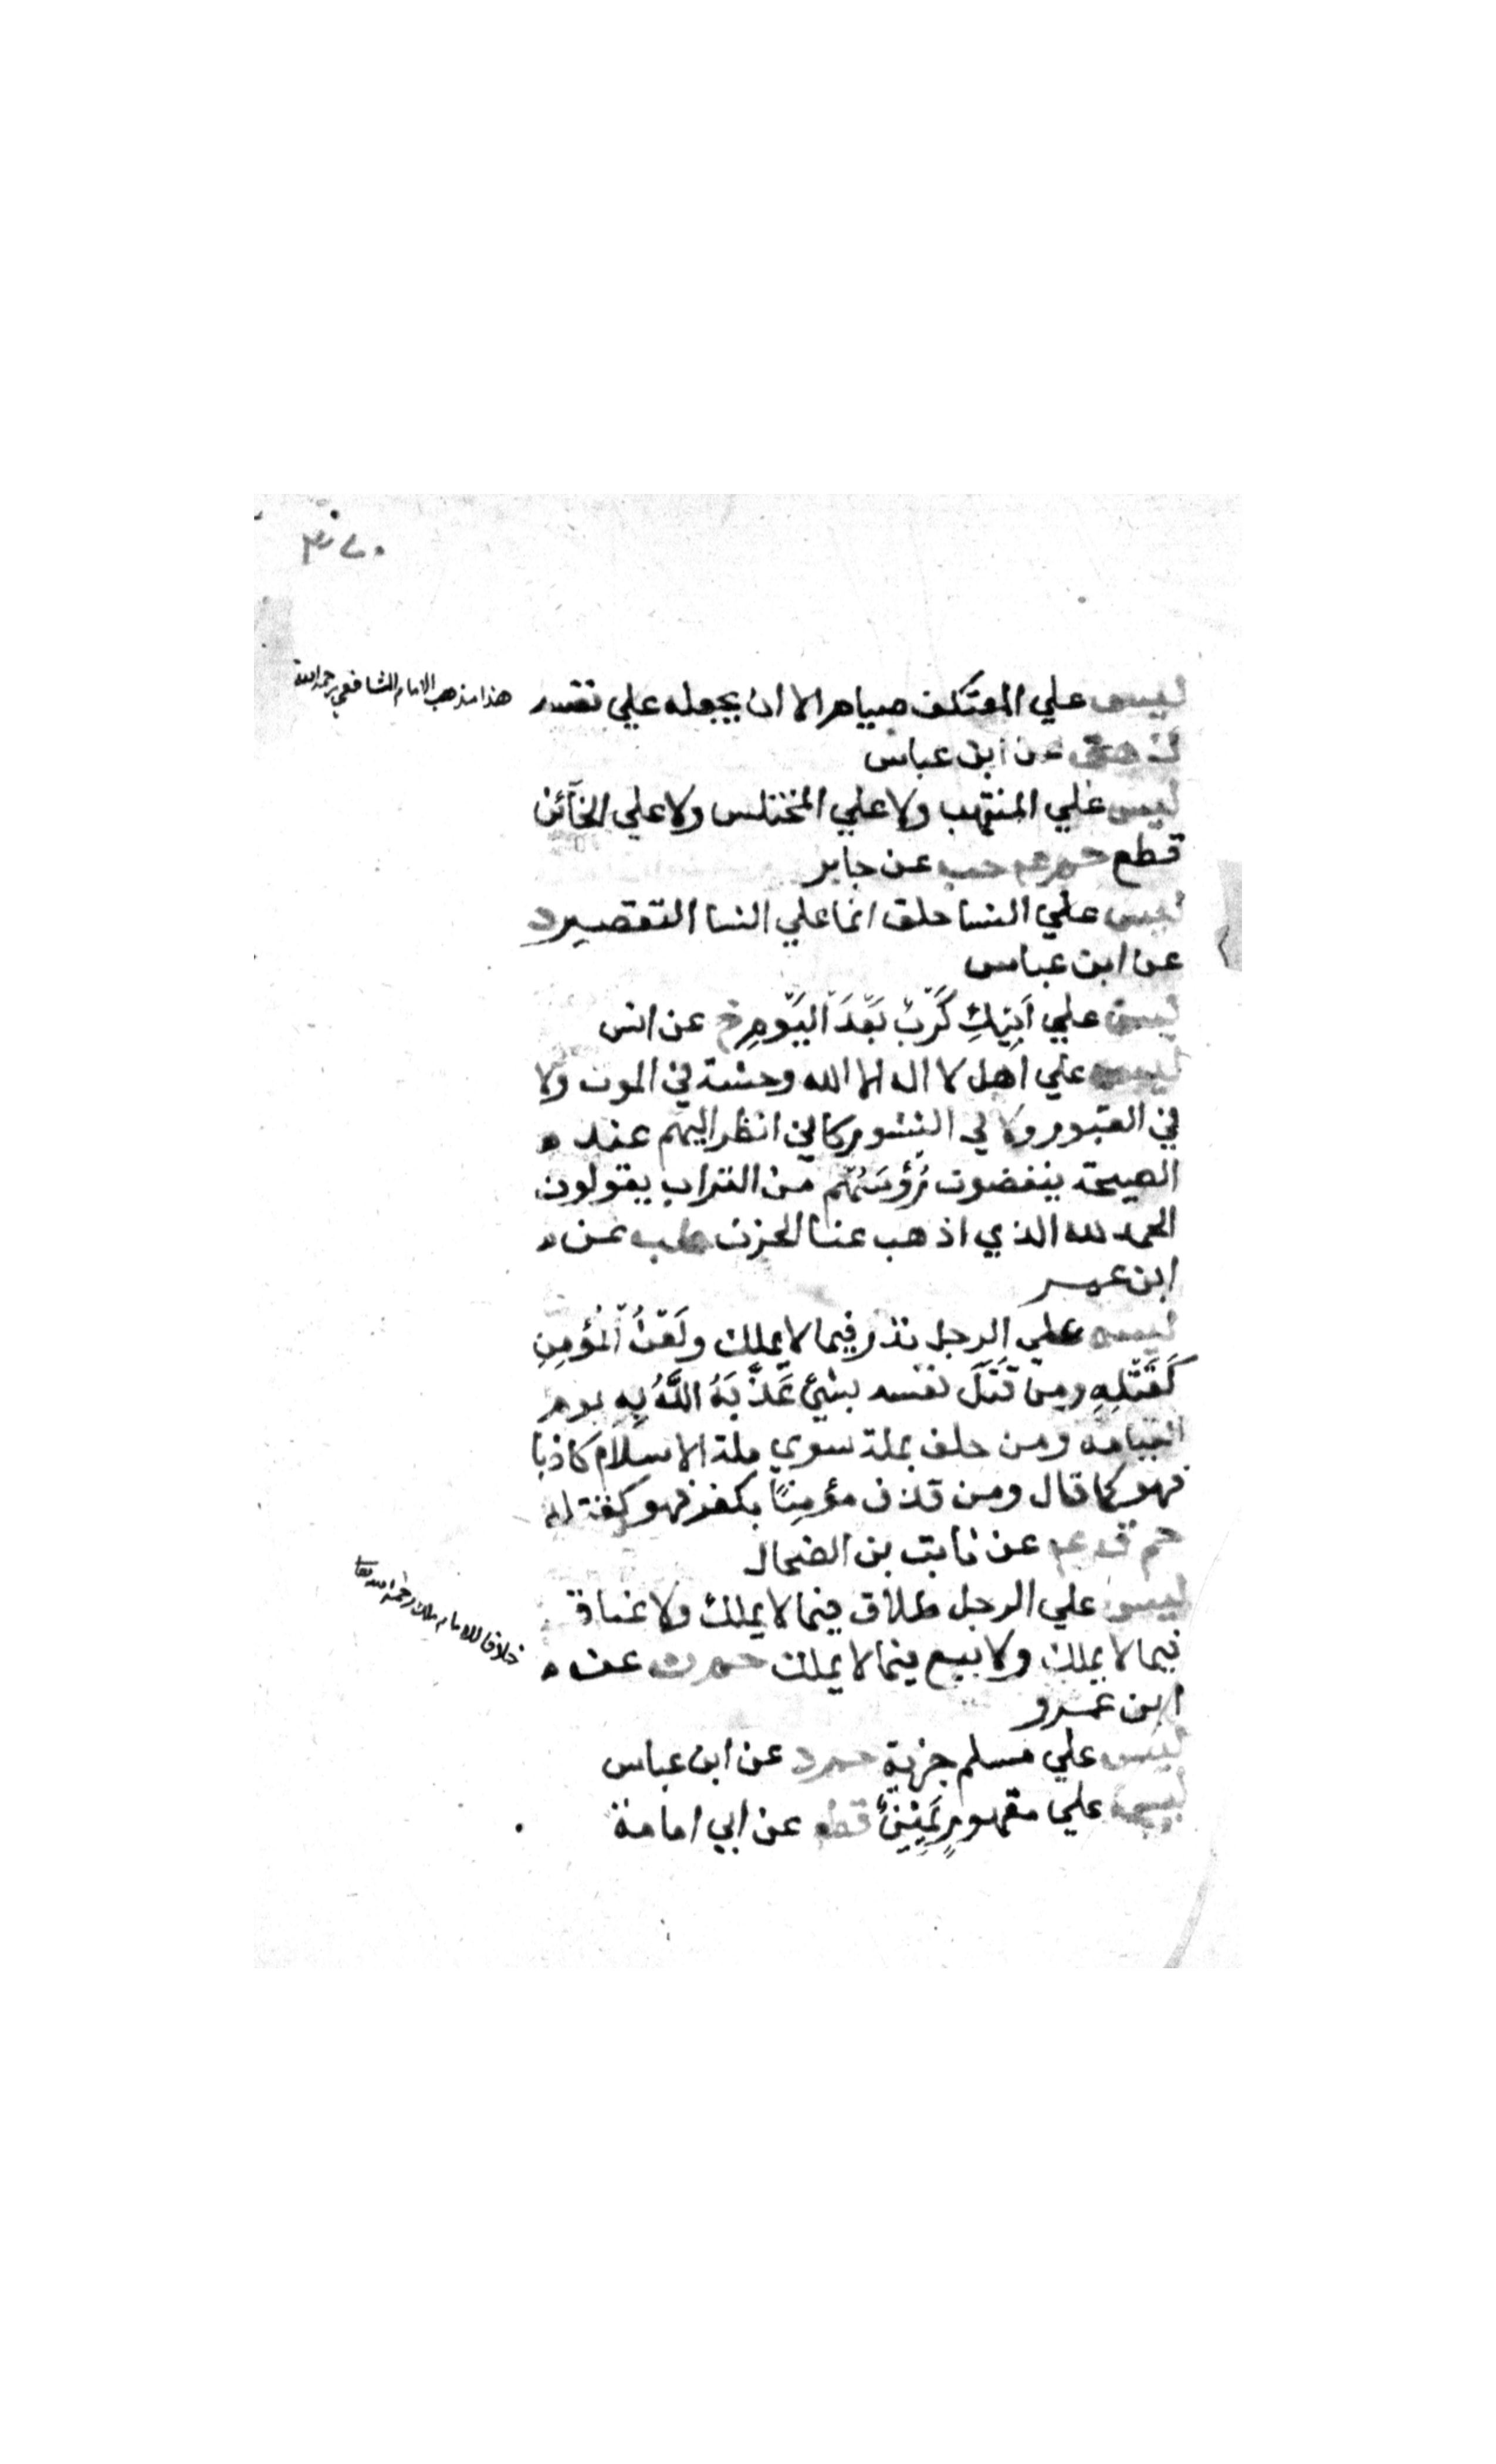 ليس علي المعتكف صيام الا ان يجعله علي نفسه
هذا مذهب الامام الشافعي رحمه الله
ك هق عن ابن عباس
ليس علي المنتهب ولا علي المختلس ولا علي الخآئن
قطع حم ٤ حب عن جابر
ليس علي النسا حلق انما علي النسا التقصير د
عن ابن عباس
ليس علي اَبِيْكِ كَرْبٌ بَعْدَ اليَوْمِ خ عن انس
ليس علي اهل لا اله الا الله وحشة في الموت ولا
في القبور ولا في النشور كاني انظر اليهم عند
الصيحة ينفضون رُؤسَهُم من التراب يقولون
الحمد لله الذي اذهب عنا الحزن طب عن
ابن عمر
ليس علي الرجل نذر فيما لا يملك ولَعْنُ المُؤمِنِ
كَقَتْلِهِ ومن قَتَلَ نفسه بشئ عَذَّبَهُ اللَّهُ بِهِ يوم
القيامه ومن حلف بملة سوي ملة الاسلام كاذبا
فهو كما قال ومن قذف مؤمِنًا بكفر فهو كقتله
حم ق ٤ عن ثابت بن الضحاك
ليس علي الرجل طلاق فيما لا يملك ولا عتاق
خلافا للامام ملك رحمه الله تعا
فيما لا يملك ولا بيع فيما لا يملك حم ن عن
ابن عمرو
ليس علي مسلم جزية حم د عن ابن عباس
ليس علي مقهورٍ يَمِيْنٌ قط عن ابي امامة